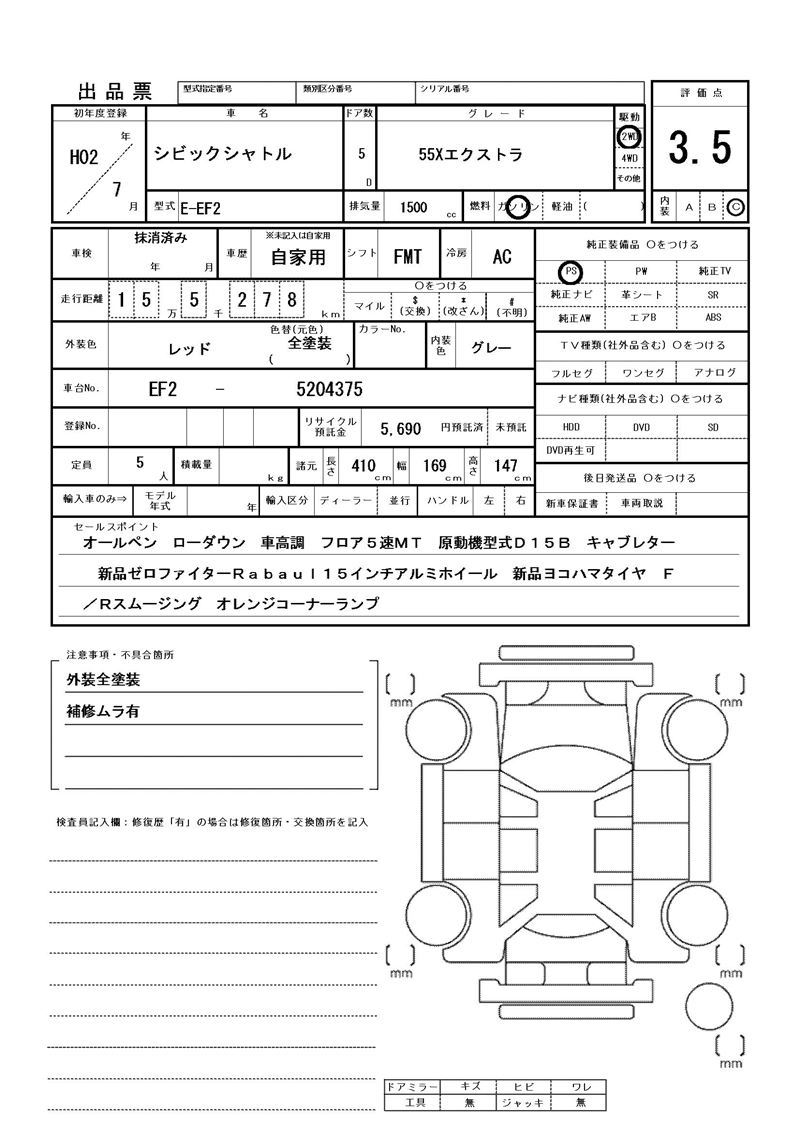 出品票 型式指定番号 類別区分番号 シリアル番号
評価点
3.5
内装 A B C
初年度登録 車名 ドア数 グレード 駆動
H02 年 7 月 シビックシャトル 5 D 55Xエクストラ 2WD
4WD
その他
型式 E-EF2 排気量 1500 cc 燃料 ガソリン 軽油 ( )
車検 抹消済み 年 月 車歴 ※未記入は自家用 自家用 シフト FMT 冷房 AC
走行距離 15万 5千 278 km 〇をつける
マイル $(交換) *(改ざん) #(不明)
外装色 レッド 色替(元色) 全塗装 ( ) カラーNo. 内装色 グレー
車台No. EF2 － 5204375
登録No. リサイクル預託金 5,690 円預託済 未預託
定員 5 人 積載量 kg 諸元 長さ 410 cm 幅 169 cm 高さ 147 cm
輸入車のみ⇒ モデル年式 年 輸入区分 ディーラー 並行 ハンドル 左 右
純正装備品 〇をつける
PS PW 純正TV
純正ナビ 革シート SR
純正AW エアB ABS
TV種類(社外品含む) 〇をつける
フルセグ ワンセグ アナログ
ナビ種類(社外品含む) 〇をつける
HDD DVD SD
DVD再生可
後日発送品 〇をつける
新車保証書 車両取説
セールスポイント
オールペン ローダウン 車高調 フロア5速MT 原動機型式D15B キャブレター
新品ゼロファイターRabaul15インチアルミホイール 新品ヨコハマタイヤ F
／Rスムージング オレンジコーナーランプ
注意事項・不具合箇所
外装全塗装
補修ムラ有
検査員記入欄：修復歴「有」の場合は修復箇所・交換箇所を記入
mm
mm
mm
mm
mm
ドアミラー キズ ヒビ ワレ
工具 無 ジャッキ 無